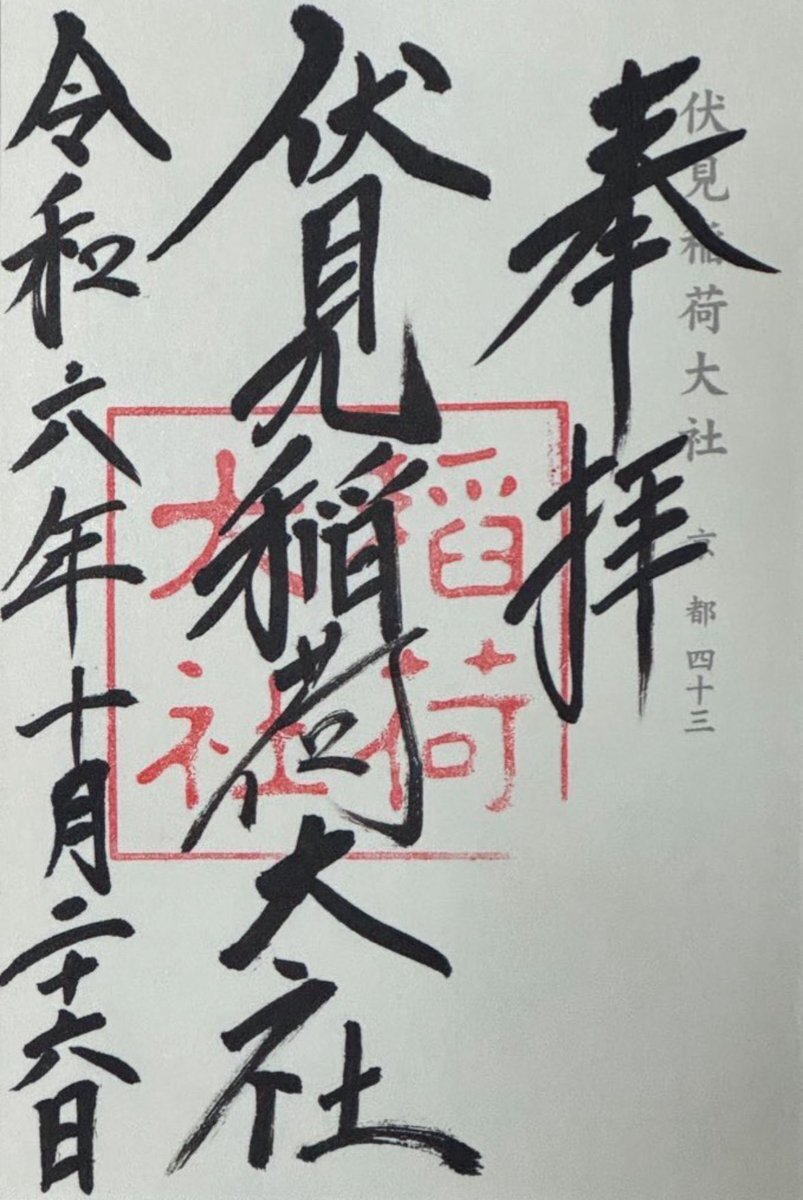 奉拝
伏見稲荷大社 京都 四十三
伏見稲荷大社
稲荷
大社
令和六年十月二十六日